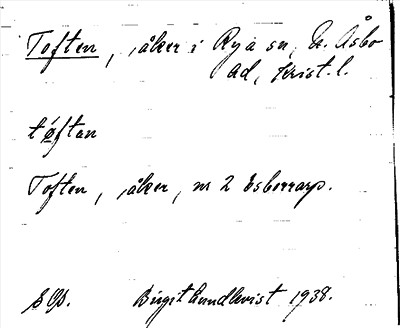 Toften, åker i Rya sn, N. Åsbo
hd, Krist. l.
tøftan
Toften, åker, nr 2 Esborrarp.
Birgit Lundkvist 1938.